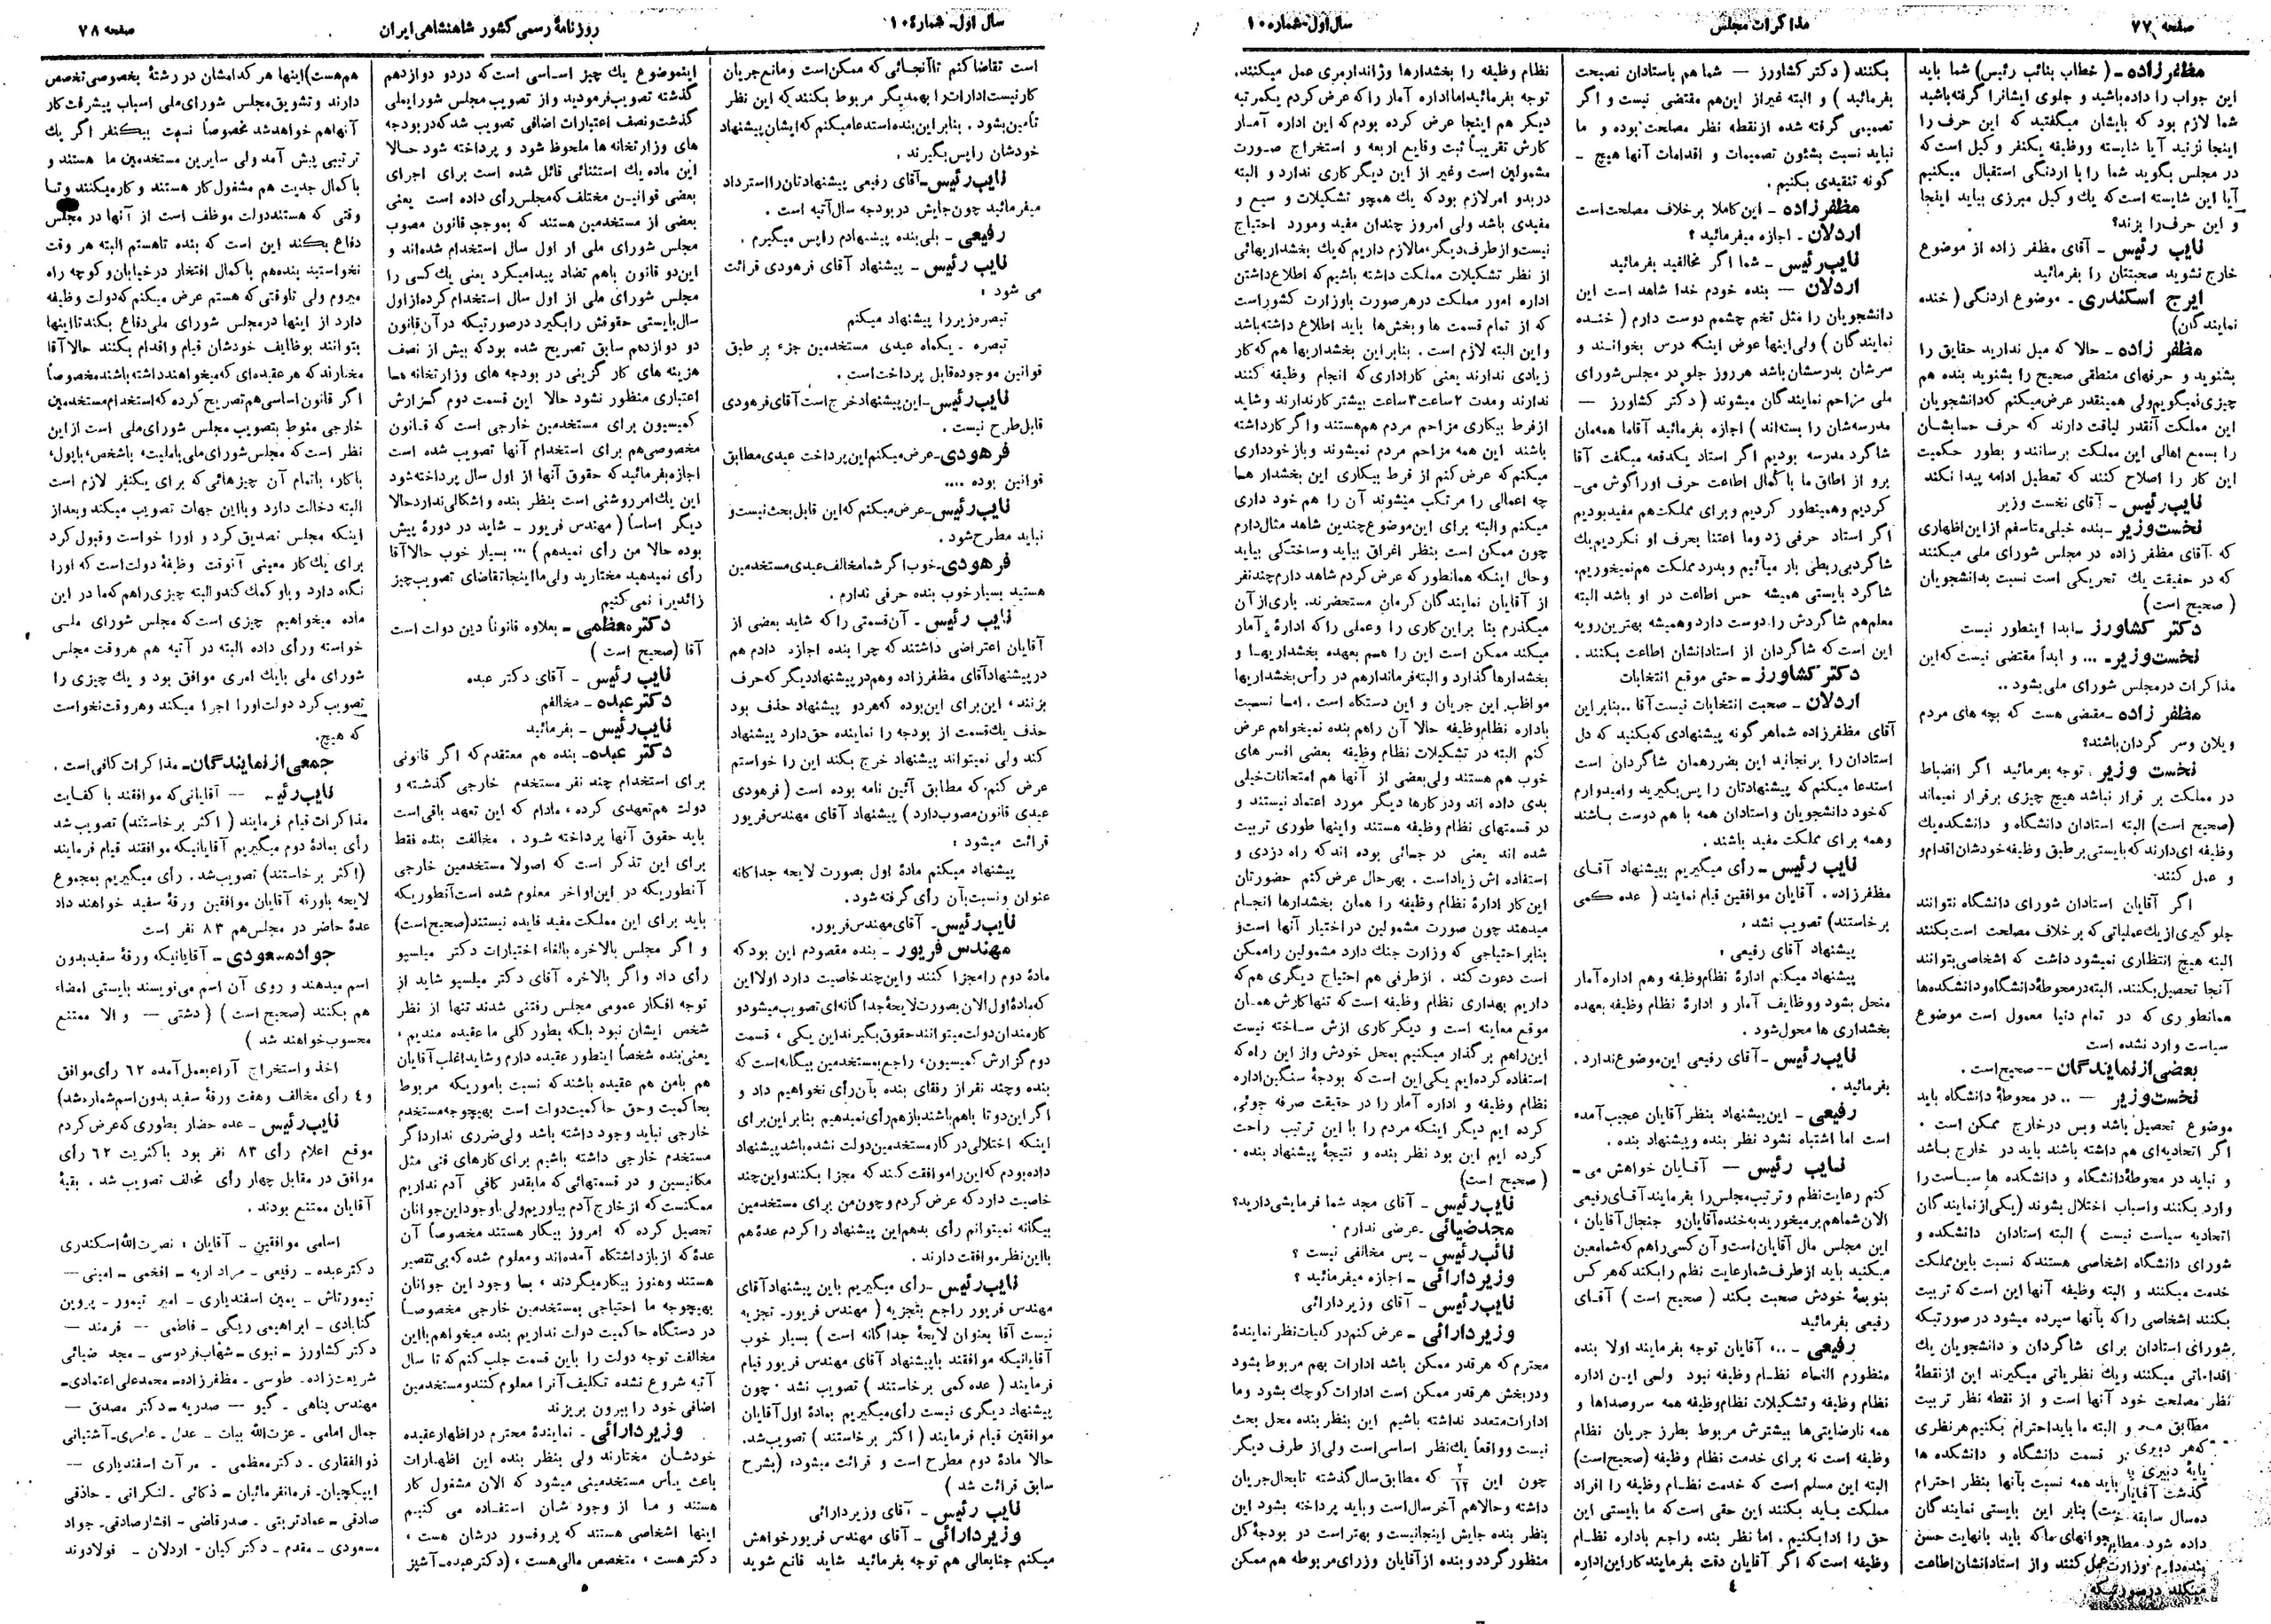 صفحه ۷۷
مذاکرات مجلس
سال اول-شماره ۱۰
مظفرزاده – ( خطاب بنائب رئیس) شما باید
این جواب را داده باشید و جلوی ایشانرا گرفته باشید
شما لازم بود که بایشان میگفتید که این حرف را
اینجا نزنید آیا شایسته ووظیفه یکنفر وکیل است که
در مجلس بگوید شما را با اردنگی استقبال میکنیم
آیا این شایسته است که یك وکیل مبرزی بیاید اینجا
و این حرف را بزند؟
نایب رئیس - آقای مظفر زاده از موضوع
خارج نشوید صحبتتان را بفرمائید
ایرج اسکندری - موضوع اردنگی ( خنده
نمایندگان)
مظفر زاده - حالا که میل ندارید حقایق را
بشنوید و حرفهای منطقی صحیح را بشنوید بنده هم
چیزی نمیگویم ولی همینقدر عرض میکنم که دانشجویان
این مملکت آنقدر لیاقت دارند که حرف حسابشان
را بسمع اهالی این مملکت برسانند و بطور حکمیت
این کار را اصلاح کنند که تعطیل ادامه پیدا نکند
نایب رئیس - آقای نخست وزیر
نخست وزیر - بنده خیلی متاسفم از این اظهاری
که آقای مظفر زاده در مجلس شورای ملی میکنند
که در حقیقت یك تحریکی است نسبت بدانشجویان
( صحیح است )
دکتر کشاورز - ابدا اینطور نیست
نخست وزیر- ... و ابداً مقتضی نیست که این
مذاکرات در مجلس شورای ملی بشود ..
مظفر زاده - مقتضی هست که بچه های مردم
ویلان و سر گردان باشند؟
نخست وزیر . توجه بفرمائید اگر انضباط
در مملکت بر قرار نباشد هیچ چیزی برقرار نمیماند
(صحیح است) البته استادان دانشگاه و دانشکده یك
وظیفه ای دارند که بایستی بر طبق وظیفه خودشان اقدام و
و عمل کنند.
اگر آقایان استادان شورای دانشگاه نتوانند
جلوگیری از یك عملیاتی که بر خلاف مصلحت است بکنند
البته هیچ انتظاری نمیشود داشت که اشخاصی بتوانند
آنجا تحصیل بکنند. البته در محوطۀ دانشگاه و دانشکده ها
همانطوری که در تمام دنیا معمول است موضوع
سیاست وارد نشده است
بعضی از نمایندگان -- صحیح است .
نخست وزیر — .. در محوطۀ دانشگاه باید
موضوع تحصیل باشد و بس در خارج ممکن است .
اگر اتحادیه ای هم داشته باشند باید در خارج باشد
و نباید در محوطۀ دانشگاه و دانشکده ها سیاست را
وارد بکنند و اسباب اختلال بشوند (یکی از نمایندگان
اتحادیه سیاست نیست ) البته استادان دانشکده و
شورای دانشگاه اشخاصی هستند که نسبت باین مملکت
خدمت میکنند و البته وظیفه آنها این است که تربیت
بکنند اشخاصی را که بآنها سپرده میشود در صورتیکه
شورای استادان برای شاگردان و دانشجویان یك
اقداماتی میکنند ویك نظریاتی میگیرند این از نقطۀ
نظر مصلحت خود آنها است و از نقطه نظر تربیت
و البته ما باید احترام بکنیم هر نظری
قسمت دانشگاه و دانشکده ها
باید همه نسبت بآنها بنظر احترام
بنابر این بایستی نمایندگان
جوانهای ما که باید بانهایت حسن
عمل کنند و از استادانشان اطاعت
بکنند ( دکتر کشاورز — شما هم باستادان نصیحت
بفرمائید ) و البته غیر از این هم مقتضی نیست و اگر
تصمیمی گرفته شده از نقطه نظر مصلحت بوده و ما
نباید نسبت بشئون تصمیمات و اقدامات آنها هیچ -
گونه تنقیدی بکنیم .
مظفر زاده - این کاملا بر خلاف مصلحت است
اردلان - اجازه میفرمائید ؟
نایب رئیس - شما اگر مخالفید بفرمائید
اردلان — بنده خودم خدا شاهد است این
دانشجویان را مثل تخم چشمم دوست دارم ( خنده
نمایندگان ) ولی اینها عوض اینکه درس بخوانند و
سرشان بدرسشان باشد هر روز جلو در مجلس شورای
ملی مزاحم نمایندگان میشوند ( دکتر کشاورز —
مدرسه شان را بسته اند ) اجازه بفرمائید آقا ما همه مان
شاگرد مدرسه بودیم اگر استاد یکدفعه میگفت آقا
برو از اطاق ما با کمال اطاعت حرف او را گوش می-
کردیم و همینطور کردیم و برای مملکت هم مفید بودیم
اگر استاد حرفی زد و ما اعتنا بحرف او نکردیم یك
شاگرد بی ربطی بار میآئیم و بدرد مملکت هم نمیخوریم.
شاگرد بایستی همیشه حس اطاعت در او باشد البته
معلم هم شاگردش را دوست دارد و همیشه بهترین رویه
این است که شاگردان از استادانشان اطاعت بکنند .
دکتر کشاورز - حتی موقع انتخابات
اردلان - صحبت انتخابات نیست آقا .. بنابر این
آقای مظفر زاده شما هر گونه پیشنهادی که بکنید که دل
استادان را برنجانید این بضرر همان شاگردان است
استدعا میکنم که پیشنهادتان را پس بگیرید و امیدوارم
که خود دانشجویان و استادان همه با هم دوست باشند
وهمه برای مملکت مفید باشند .
نایب رئیس - رأی میگیریم بپیشنهاد آقای
مظفر زاده . آقایان موافقین قیام نمایند ( عده کمی
برخاستند) تصویب نشد ،
پیشنهاد آقای رفیعی ،
پیشنهاد میکنم ادارۀ نظام وظیفه وهم اداره آمار
منحل بشود ووظایف آمار و ادارۀ نظام وظیفه بعهده
بخشداری ها محول شود .
نایب رئیس - آقای رفیعی این موضوع ندارد .
بفرمائید .
رفیعی - این پیشنهاد بنظر آقایان عجیب آمده
است اما اشتباه نشود نظر بنده و پیشنهاد بنده .
نایب رئیس — آقایان خواهش می-
کنم رعایت نظم و ترتیب مجلس را بفرمایند آقای رفیعی
الان شما هم بر میخورید به خنده آقایان و جنجال آقایان ،
این مجلس مال آقایان است و آن کسی را هم که شما معین
میکنید باید از طرف شما رعایت نظم را بکند که هر کس
بنوبۀ خودش صحبت بکند ( صحیح است ) آقای
رفیعی بفرمائید
رفیعی - .., آقایان توجه بفرمایند اولا بنده
منظورم الغاء نظام وظیفه نبود ولی این اداره
نظام وظیفه و تشکیلات نظام وظیفه همه سر و صداها و
همه نارضایتی ها بیشترش مربوط بطرز جریان نظام
وظیفه است نه برای خدمت نظام وظیفه (صحیح است)
البته این مسلم است که خدمت نظام وظیفه را افراد
مملکت باید بکنند این حقی است که ما بایستی این
حق را ادا بکنیم . اما نظر بنده راجع باداره نظام
وظیفه است که اگر آقایان دقت بفرمایند کار این اداره
۴
نظام وظیفه را بخشدارها وژاندارمری عمل میکنند.
توجه بفرمائید اما اداره آمار را که عرض کردم یکمرتبه
دیگر هم اینجا عرض کرده بودم که این اداره آمار
کارش تقریباً ثبت وقایع اربعه و استخراج صورت
مشمولین است وغیر از این دیگر کاری ندارد و البته
در بدو امر لازم بود که یك همچو تشکیلات و سیع و
مفیدی باشد ولی امروز چندان مفید ومورد احتیاج
نیست و از طرف دیگر ما لازم داریم که یك بخشداریهائی
از نظر تشکیلات مملکت داشته باشیم که اطلاع داشتن
اداره امور مملکت در هر صورت باوزارت کشور است
که از تمام قسمت ها و بخش ها باید اطلاع داشته باشد
و این البته لازم است . بنابر این بخشداریها هم که کار
زیادی ندارند یعنی کار اداری که انجام وظیفه کنند
ندارند و مدت ۲ ساعت ۳ ساعت بیشتر کار ندارند و شاید
از فرط بیکاری مزاحم مردم هم هستند و اگر کار داشته
باشند این همه مزاحم مردم نمیشوند و باز خودداری
میکنم که عرض کنم از فرط بیکاری این بخشدار هما
چه اعمالی را مرتکب میشوند آن را هم خود داری
میکنم و البته برای این موضوع چندین شاهد مثال دارم
چون ممکن است بنظر اغراق بیاید و ساختگی بیاید
و حال اینکه همانطور که عرض کردم شاهد دارم چند نفر
از آقایان نمایندگان کرمان مستحضرند. باری از آن
میگذرم بنا بر این کاری را و عملی را که ادارۀ آمار
میکند ممکن است این را هم بعهده بخشداریها و
بخشدارها گذارد و البته فرماندارهم در رأس بخشداریها
مواظب این جریان و این دستگاه است . اما نسبت
باداره نظام وظیفه حالا آن راهم بنده نمیخواهم عرض
کنم البته در تشکیلات نظام وظیفه بعضی افسر های
خوب هم هستند ولی بعضی از آنها هم امتحانات خیلی
بدی داده اند و در کارها دیگر مورد اعتماد نیستند و
در قسمتهای نظام وظیفه هستند و اینها طوری تربیت
شده اند یعنی در جائی بوده اند که راه دزدی و
استفاده اش زیاد است . بهر حال عرض کنم حضورتان
این کار ادارۀ نظام وظیفه را همان بخشدارها انجام
میدهند چون صورت مشمولین در اختیار آنها است و
بنابر احتیاجی که وزارت جنك دارد مشمولین را ممکن
است دعوت کند . از طرفی هم احتیاج دیگری هم که
داریم بهداری نظام وظیفه است که تنها کارش همان
موقع معاینه است و دیگر کاری ازش ساخته نیست
این راهم بر گذار میکنیم بمحل خودش و از این راه که
استفاده کرده ایم یکی این است که بودجۀ سنگین اداره
نظام وظیفه و اداره آمار را در حقیقت صرفه جوئی
کرده ایم دیگر اینکه مردم را با این ترتیب راحت
کرده ایم این بود نظر بنده و نتیجۀ پیشنهاد بنده .
( صحیح است)
نایب رئیس - آقای مجد شما فرمایشی دارید؟
مجد ضیائی - عرضی ندارم .
نائب رئیس - پس مخالفی نیست ؟
وزیر دارائی - اجازه میفرمائید ؟
نایب رئیس - آقای وزیر دارائی
وزیر دارائی - عرض کنم در کلیات نظر نمایندۀ
محترم که هر قدر ممکن باشد ادارات بهم مربوط بشود
ودر بخش هر قدر ممکن است ادارات کوچك بشود و ما
ادارات متعدد نداشته باشیم این بنظر بنده محل بحث
نیست و واقعاً یك نظر اساسی است ولی از طرف دیگر
چون این ۲/۱۲ که مطابق سال گذشته تابحال جریان
داشته و حالا هم آخر سال است و باید پرداخته بشود این
بنظر بنده جایش اینجا نیست و بهتر است در بودجۀ کل
منظور گردد و بنده از آقایان وزرای مربوطه هم ممکن
سال اول- شمارۀ ۱۰
روزنامۀ رسمی کشور شاهنشاهی ایران
صفحه ۷۸
است تقاضا کنم تا آنجائی که ممکن است و مانع جریان
کار نیست ادارات را بهمدیگر مربوط بکنند که این نظر
تأمین بشود . بنابر این بنده استدعا میکنم که ایشان پیشنهاد
خودشان را پس بگیرند .
نایب رئیس - آقای رفیعی پیشنهادتان را استرداد
میفرمائید چون جایش در بودجه سال آتیه است .
رفیعی - بلی بنده پیشنهادم را پس میگیرم .
نایب رئیس - پیشنهاد آقای فرهودی قرائت
می شود :
تبصره زیر را پیشنهاد میکنم
تبصره - یکماه عیدی مستخدمین جزء بر طبق
قوانین موجوده قابل پرداخت است .
نایب رئیس - این پیشنهاد خرج است آقای فرهودی
قابل طرح نیست .
فرهودی - عرض میکنم این پرداخت عیدی مطابق
قوانین بوده ....
نایب رئیس - عرض میکنم که این قابل بحث نیست و
نباید مطرح شود .
فرهودی - خوب اگر شما مخالف عیدی مستخدمین
هستید بسیار خوب بنده حرفی ندارم .
نایب رئیس - آن قسمتی را که شاید بعضی از
آقایان اعتراضی داشتند که چرا بنده اجازه دادم هم
در پیشنهاد آقای مظفر زاده وهم در پیشنهاد دیگر که حرف
بزنند ، این برای این بوده که هر دو پیشنهاد حذف بود
حذف یك قسمت از بودجه را نماینده حق دارد پیشنهاد
کند ولی نمیتواند پیشنهاد خرج بکند این را خواستم
عرض کنم، که مطابق آئین نامه بوده است ( فرهودی
عیدی قانون مصوب دارد ) پیشنهاد آقای مهندس فریور
قرائت میشود :
پیشنهاد میکنم مادۀ اول بصورت لایحه جداگانه
عنوان و نسبت بآن رأی گرفته شود .
نایب رئیس- آقای مهندس فریور.
مهندس فریور - بنده مقصودم این بود که
مادۀ دوم را مجزا کنند و این چند خاصیت دارد اولا این
که مادۀ اول الان بصورت لایحۀ جداگانه ای تصویب میشود و
کارمندان دولت میتوانند حقوق بگیرند این یکی ، قسمت
دوم گزارش کمیسیون، راجع بمستخدمین بیگانه است که
بنده و چند نفر از رفقای بنده بآن رأی نخواهیم داد و
اگر این دو تا باهم باشند باز هم رأی نمیدهیم بنابر این برای
اینکه اختلالی در کار مستخدمین دولت نشده باشد پیشنهاد
داده بودم که این را موافقت کنند که مجزا بکنند و این چند
خاصیت دارد که عرض کردم و چون من برای مستخدمین
بیگانه نمیتوانم رأی بدهم این پیشنهاد را کردم عدۀ هم
با این نظر موافقت دارند .
نایب رئیس - رأی میگیریم باین پیشنهاد آقای
مهندس فریور راجع بتجزیه ( مهندس فریور- تجزیه
نیست آقا بعنوان لایحۀ جداگانه است ) بسیار خوب
آقایانیکه موافقند باپیشنهاد آقای مهندس فریور قیام
فرمایند ( عده کمی برخاستند ) تصویب نشد . چون
پیشنهاد دیگری نیست رأی میگیریم بمادۀ اول آقایان
موافقین قیام فرمایند ( اکثر برخاستند ) تصویب شد.
حالا مادۀ دوم مطرح است و قرائت میشود: (بشرح
سابق قرائت شد )
نایب رئیس - آقای وزیر دارائی
وزیر دارائی - آقای مهندس فریور خواهش
میکنم جنابعالی هم توجه بفرمائید شاید قانع شوید
اینموضوع یك چیز اساسی است که در دو دوازدهم
گذشته تصویب فرمودید و از تصویب مجلس شورایملی
گذشت و نصف اعتبارات اضافی تصویب شد که در بودجه
های وزارتخانه ها ملحوظ شود و پرداخته شود حالا
این ماده یك استثنائی قائل شده است برای اجرای
بعضی قوانین مختلف که مجلس رأی داده است یعنی
بعضی از مستخدمین هستند که بموجب قانون مصوب
مجلس شورای ملی از اول سال استخدام شده اند و
این دو قانون باهم تضاد پیدا میکرد یعنی یك کسی را
مجلس شورای ملی از اول سال استخدام کرده از اول
سال بایستی حقوقش را بگیرد در صورتیکه در آن قانون
دو دوازدهم سابق تصریح شده بود که بیش از نصف
هزینه های کار گزینی در بودجه های وزارتخانه هما
اعتباری منظور نشود حالا این قسمت دوم گزارش
کمیسیون برای مستخدمین خارجی است که قانون
مخصوصی هم برای استخدام آنها تصویب شده است
اجازه بفرمائید که حقوق آنها از اول سال پرداخته شود
این یك امر روشنی است بنظر بنده و اشکالی ندارد حالا
دیگر اساساً ( مهندس فریور - شاید در دورۀ پیش
بوده حالا من رأی نمیدهم ) ... بسیار خوب حالا آقا
رأی نمیدهید مختارید ولی ما اینجا تقاضای تصویب چیز
زائدیرا نمی کنیم
دکتر معظمی - بعلاوه قانوناً دین دولت است
آقا (صحیح است )
نایب رئیس - آقای دکتر عبده
دکتر عبده - مخالفم
نایب رئیس - بفرمائید
دکتر عبده- بنده هم معتقدم که اگر قانونی
برای استخدام چند نفر مستخدم خارجی گذشته و
دولت هم تعهدی کرده ، مادام که این تعهد باقی است
باید حقوق آنها پرداخته شود . مخالفت بنده فقط
برای این تذکر است که اصولا مستخدمین خارجی
آنطوریکه در این اواخر معلوم شده است آنطوریکه
باید برای این مملکت مفید فایده نیستند (صحیح است)
و اگر مجلس بالاخره بالغاء اختیارات دکتر میلسپو
رأی داد و اگر بالاخره آقای دکتر میلسپو شاید از
توجه افکار عمومی مجلس رفتنی شدند تنها از نظر
شخص ایشان نبود بلکه بطور کلی ما عقیده مندیم ،
یعنی بنده شخصاً اینطور عقیده دارم و شاید اغلب آقایان
هم بامن هم عقیده باشند که نسبت باموریکه مربوط
بحاکمیت وحق حاکمیت دولت است بهیچوجه مستخدم
خارجی نباید وجود داشته باشد ولی ضرری ندارد اگر
مستخدم خارجی داشته باشیم برای کارهای فنی مثل
مکانیسین و در قسمتهائی که مابقدر کافی آدم نداریم
ممکنست که از خارج آدم بیاوریم ولی باوجود این جوانان
تحصیل کرده که امروز بیکار هستند مخصوصاً آن
عدۀ که از بازداشتگاه آمده اند و معلوم شده که بی تقصیر
هستند و هنوز بیکار میگردند ، بما وجود این جوانان
بهیچوجه ما احتیاجی بمستخدمین خارجی مخصوصاً
در دستگاه حاکمیت دولت نداریم بنده میخواهم با این
مخالفت توجه دولت را باین قسمت جلب کنم که تا سال
آتیه شروع نشده تکلیف آنرا معلوم کنند و مستخدمین
اضافی خود را بیرون بریزند
وزیر دارائی - نمایندۀ محترم در اظهار عقیده
خودشان مختارند ولی بنظر بنده این اظهارات
باعث یأس مستخدمینی میشود که الان مشغول کار
هستند و ما از وجود شان استفاده می کنیم
اینها اشخاصی هستند که پروفسور درشان هست ،
دکتر هست ، متخصص مالی هست ، ( دکتر عبده- آشپز
۵
هم هست) اینها هر کدامشان در رشتۀ بخصوصی تخصص
دارند و تشویق مجلس شورای ملی اسباب پیشرفت کار
آنهاهم خواهد شد مخصوصاً نسبت بیکنفر اگر یك
ترتیبی پیش آمد ولی سایرین مستخدمین ما هستند و
با کمال جدیت هم مشغول کار هستند و کار میکنند و تا
وقتی که هستند دولت موظف است از آنها در مجلس
دفاع بکند این است که بنده تا هستم البته هر وقت
نخواستید بنده هم با کمال افتخار در خیابان و کوچه راه
میروم ولی تاوقتی که هستم عرض میکنم که دولت وظیفه
دارد از اینها در مجلس شورای ملی دفاع بکند تا اینها
بتوانند بوظایف خودشان قیام و اقدام بکنند حالا آقا
مختارند که هر عقیده ای که میخواهند داشته باشند مخصوصاً
اگر قانون اساسی هم تصریح کرده که استخدام مستخدمین
خارجی منوط بتصویب مجلس شورای ملی است از این
نظر است که مجلس شورای ملی باملیت، باشخص، باپول،
باکار، باتمام آن چیزهائی که برای یکنفر لازم است
البته دخالت دارد و بااین جهات تصویب میکند و بعد از
اینکه مجلس تصدیق کرد و اورا خواست و قبول کرد
برای یك کار معینی آنوقت وظیفۀ دولت است که اورا
نگاه دارد و باو کمك کند و البته چیزی راهم که ما در این
ماده میخواهیم چیزی است که مجلس شورای ملی
خواسته و رأی داده البته در آتیه هم هروقت مجلس
شورای ملی بایك امری موافق بود و یك چیزی را
تصویب کرد دولت اورا اجرا میکند و هر وقت نخواست
که هیچ.
جمعی از نمایندگان- مذاکرات کافی است .
نایب رئیس -- آقایانی که موافقند با کفایت
مذاکرات قیام فرمایند ( اکثر برخاستند) تصویب شد
رأی بمادۀ دوم میگیریم آقایانیکه موافقند قیام فرمایند
(اکثر برخاستند) تصویب شد . رأی میگیریم بمجموع
لایحه باورقه آقایان موافقین ورقۀ سفید خواهند داد
عدۀ حاضر در مجلس هم ۸۳ نفر است
جواد مسعودی - آقایانیکه ورقۀ سفید بدون
اسم میدهند و روی آن اسم می نویسند بایستی امضاء
هم بکنند (صحیح است ) ( دشتی — و الا ممتنع
محسوب خواهند شد )
اخذ و استخراج آراء بعمل آمده ۶۲ رأی موافق
و ٤ رأی مخالف وهفت ورقۀ سفید بدون اسم شماره شد)
نایب رئیس - عده حضار بطوری که عرض کردم
موقع اعلام رأی ۸۳ نفر بود با کثریت ۶۲ رأی
موافق در مقابل چهار رأی مخالف تصویب شد . بقیۀ
آقایان ممتنع بودند .
اسامی موافقین - آقایان : نصرت الله اسکندری
دکتر عبده - رفیعی - مراد اریه - افخمی - امینی —
تیمورتاش - یمین اسفندیاری - امیر تیمور - پروین
گنابادی - ابراهیمی ریگی - فاطمی -- فرمند —
دکتر کشاورز - نبوی - شهاب فردوسی - مجد ضیائی
شریعت زاده - طوسی - مظفرزاده - محمد علی اعتمادی-
مهندس پناهی - گیو -- صدریه - دکتر مصدق —
جمال امامی - عزت الله بیات - عدل - عامری - آشتیانی
ذوالفقاری - دکتر معظمی - مرآت اسفندیاری --
ایپکچیان- فرمانفرمائیان - ذکائی - لنکرانی - حاذقی
صادقی - عماد تربتی - صدر قاضی - افشار صادقی- جواد
مسعودی - مقدم - دکتر کیان - اردلان - فولادوند